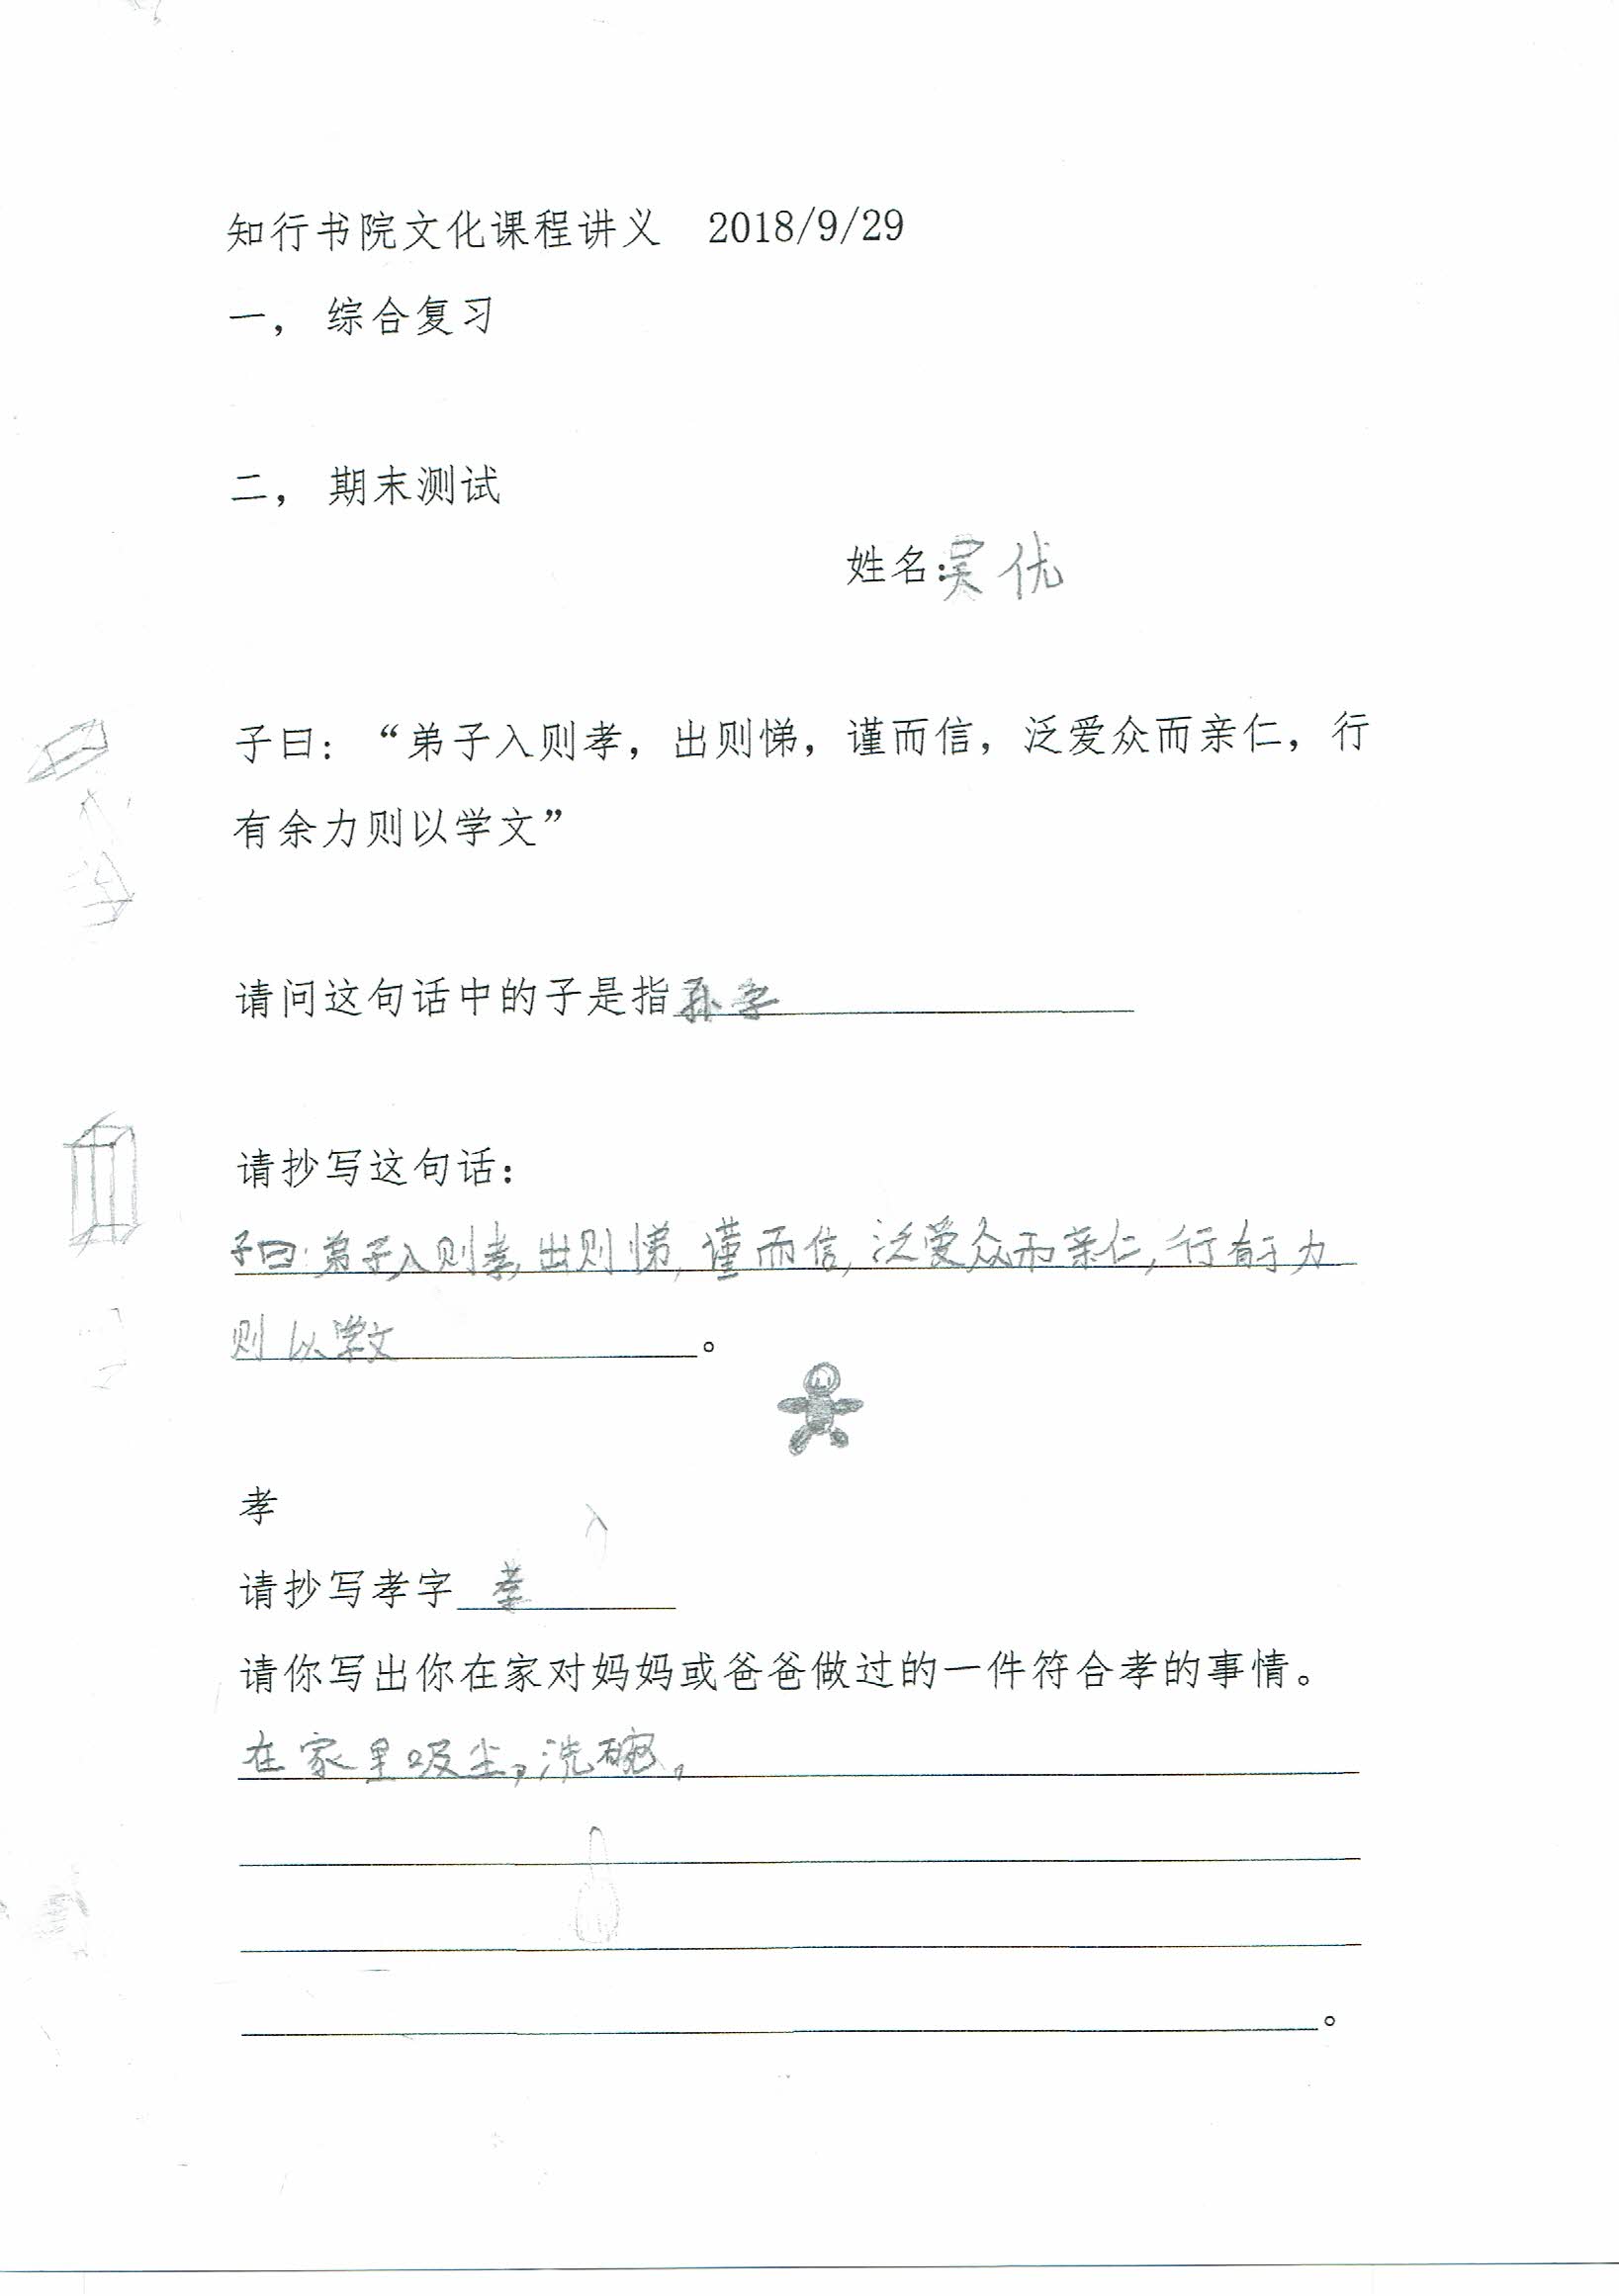 知行书院文化课程讲义 2018/9/29
一， 综合复习
二， 期末测试
姓名：吴优
子曰：“弟子入则孝，出则悌，谨而信，泛爱众而亲仁，行
有余力则以学文”
请问这句话中的子是指孙子
请抄写这句话：
子曰：弟子入则孝，出则悌，谨而信，泛爱众而亲仁，行有于力
则以学文。
孝
请抄写孝字 孝
请你写出你在家对妈妈或爸爸做过的一件符合孝的事情。
在家里吸尘，洗碗，
。